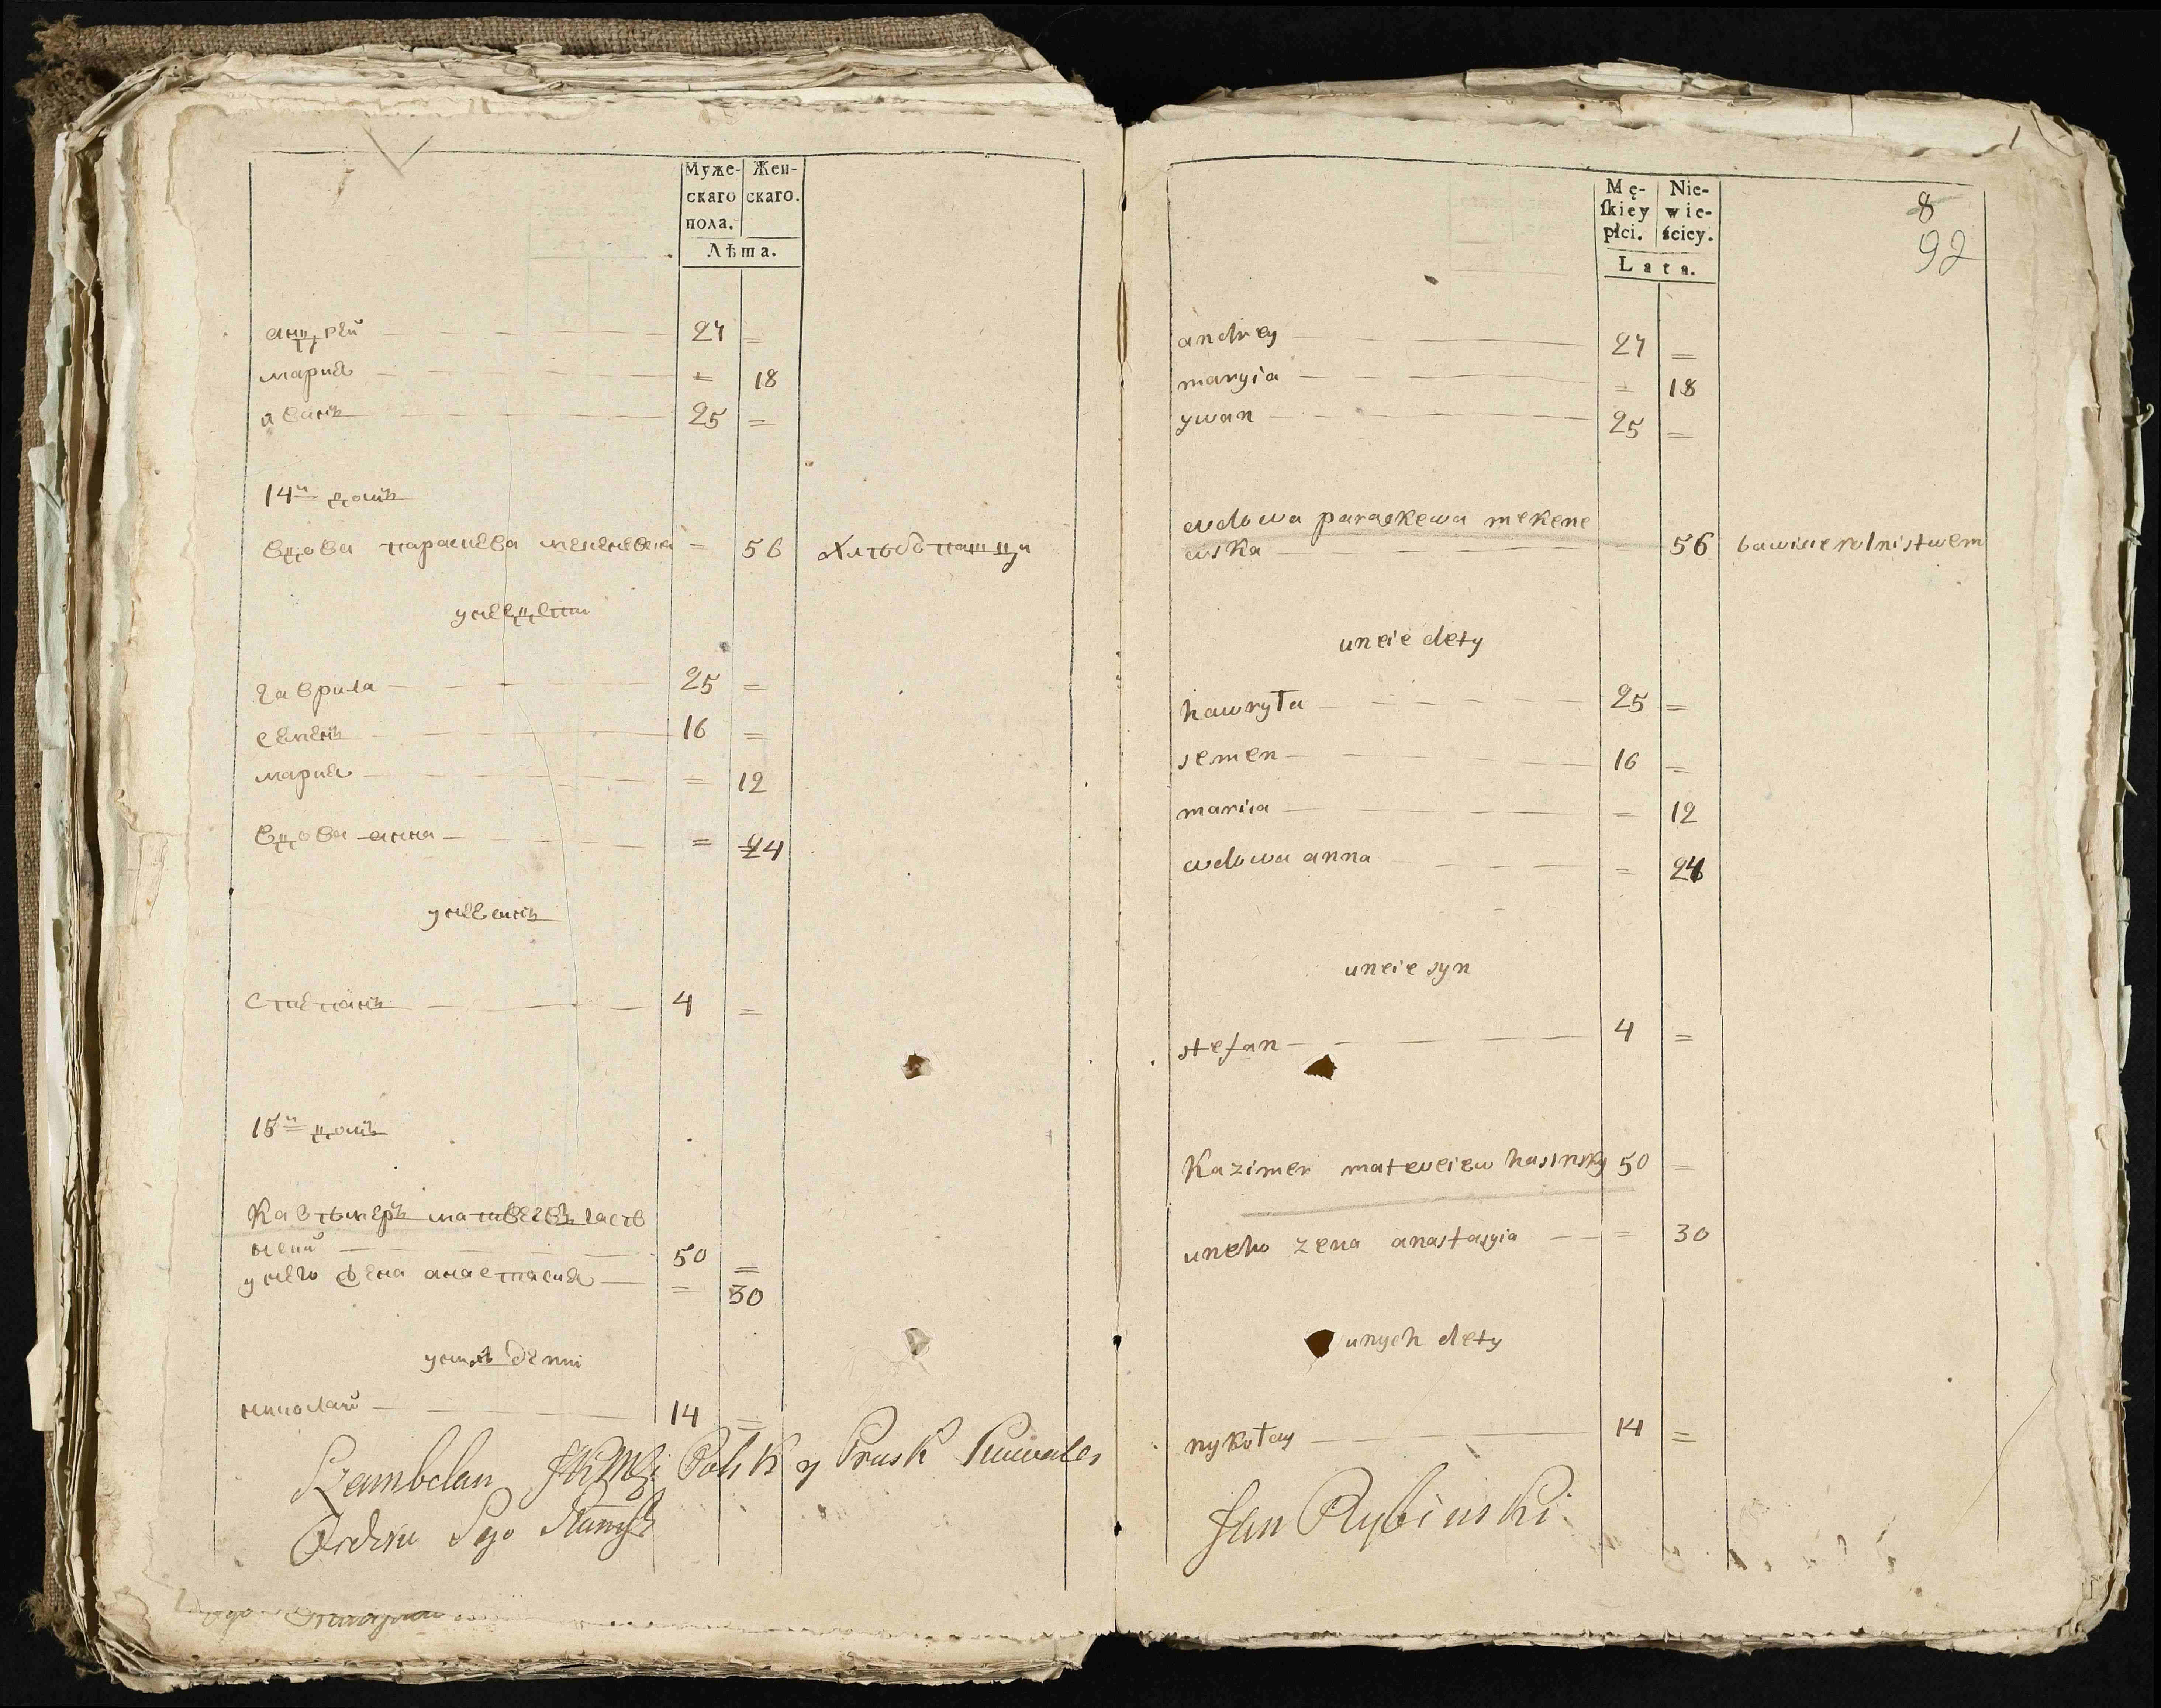 Муже-
скаго
пола.
Жен-
скаго.
Лѣта.
андрей 27 =
мариа = 18
иванъ 25 =
14й домъ
вдова параскева мекеневска = 56 хлѣбопашци
унее дети
гаврила 25 =
семенъ 16 =
мариа = 12
вдова анна = 24
унее синъ
степанъ 4 =
15й домъ
Казѣмеръ матвеевъ гасѣн
ский 50 =
унего жена анастасиа = 30
унихъ дети
николай 14 =
Szambelan Polsk y Prusk Kawaler
Orderu Sgo Stanisł
8
92
Mę-
skiey
płci.
Nie-
wie-
ściey.
Lata.
andrey 27 =
maryia = 18
ywan 25 =
wdowa paraskewa mekene
wska 56 bawiące rolnistwem
uneie dety
hawryła 25 =
semen 16 =
mariia = 12
wdowa anna = 24
uneie syn
stefan 4 =
Kazimer mateveiew hasinsky 50 =
uneho zena anastasyia = 30
unych dety
nykołay 14 =
Jan Rybinski